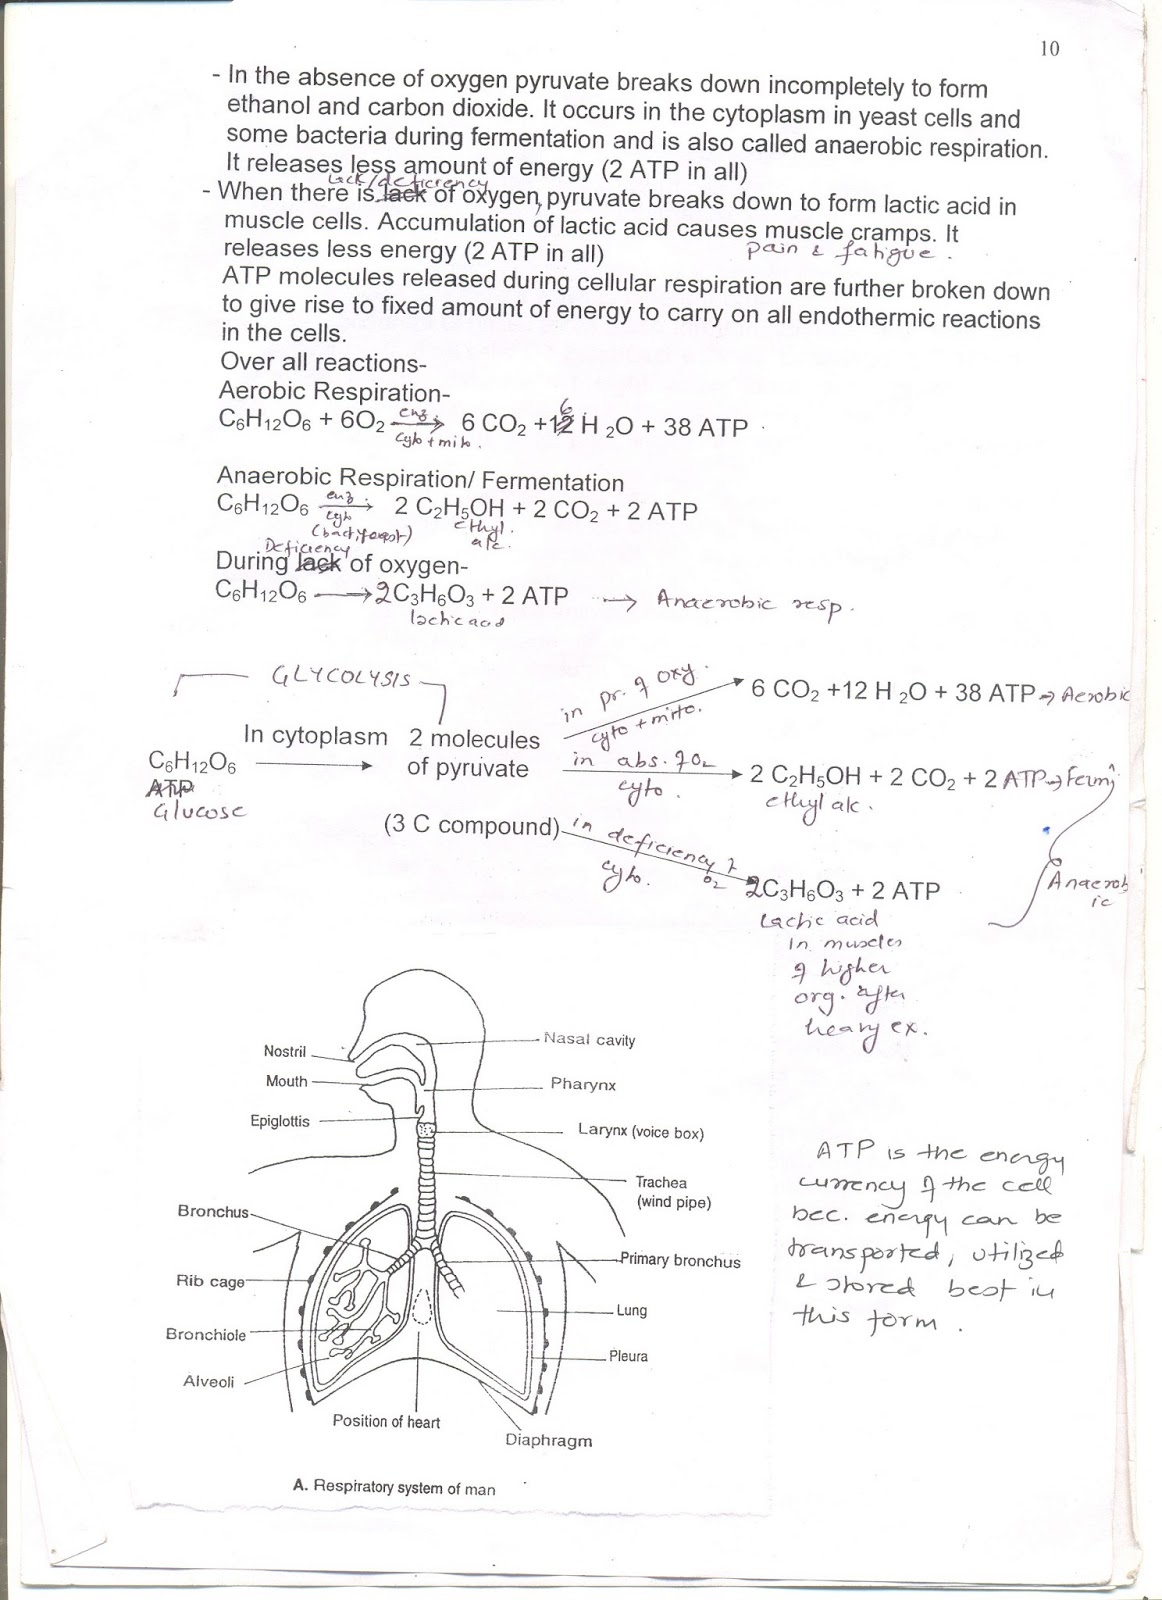 10
- In the absence of oxygen pyruvate breaks down incompletely to form
ethanol and carbon dioxide. It occurs in the cytoplasm in yeast cells and
some bacteria during fermentation and is also called anaerobic respiration.
It releases less amount of energy (2 ATP in all)
lack/deficiency
- When there is lack of oxygen, pyruvate breaks down to form lactic acid in
muscle cells. Accumulation of lactic acid causes muscle cramps. It
releases less energy (2 ATP in all) pain & fatigue.
ATP molecules released during cellular respiration are further broken down
to give rise to fixed amount of energy to carry on all endothermic reactions
in the cells.
Over all reactions-
Aerobic Respiration-
6
C6H12O6 + 6O2 enz. → 6 CO2 +12 H2O + 38 ATP
cyto + mito.
Anaerobic Respiration/ Fermentation
C6H12O6 enz. → 2 C2H5OH + 2 CO2 + 2 ATP
cyto ethyl
alc.
Deficiency
During lack of oxygen-
C6H12O6 → 2C3H6O3 + 2 ATP → Anaerobic resp.
lactic acid
GLYCOLYSIS
in pr. of oxy.
cyto + mito.
6 CO2 +12 H2O + 38 ATP → Aerobic
In cytoplasm 2 molecules
of pyruvate
C6H12O6 →
ATP
Glucose
in abs. of O2
cyto.
2 C2H5OH + 2 CO2 + 2 ATP → Ferm
ethyl alc.
(3 C compound)
in deficiency of O2
cyto.
2C3H6O3 + 2 ATP
Anaerobic
Lactic acid
in muscles
of higher
org. after
heavy ex.
Nostril
Nasal cavity
Mouth
Pharynx
Epiglottis
Larynx (voice box)
Trachea
(wind pipe)
Bronchus
Primary bronchus
Rib cage
Lung
Bronchiole
Pleura
Alveoli
Position of heart
Diaphragm
A. Respiratory system of man
ATP is the energy
currency of the cell
bec. energy can be
transported, utilized
& stored best in
this form.